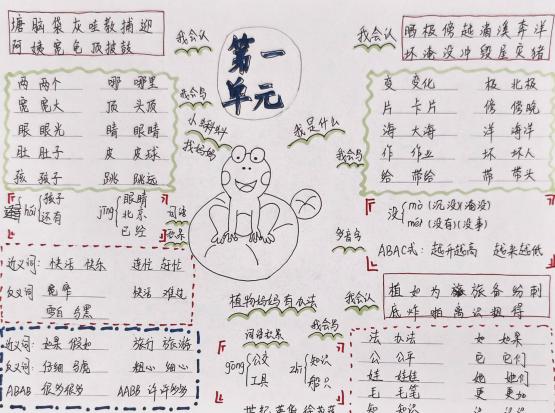 塘 脑 袋 灰 哇 教 捕 迎
阿 姨 宽 龟 顶 披 鼓
我会认
第一
单元
晒 极 傍 越 滴 溪 奔 洋
坏 淹 没 冲 毁 屋 灾 猪
我会认
两 两个 哪 哪里
宽 宽大 顶 头顶
眼 眼光 睛 眼睛
肚 肚子 皮 皮球
孩 孩子 跳 跳远
我会写
小蝌蚪
找妈妈
我是什么
我会写
变 变化 极 北极
片 卡片 傍 傍晚
海 大海 洋 海洋
作 作业 坏 坏人
给 带给 带 带头
hái
孩子
还有
jīng
眼睛
北京
已经
词语
没
mò (沉没)(淹没)
méi (没有)(没事)
多音字
ABAC式: 越升越高 越来越低
近义词: 快活 快乐 连忙 赶忙
反义词: 宽 窄 快活 难过
雪白 乌黑
植物妈妈有办法
我会认
植 如 为 旅 备 纷 刺
底 炸 啪 离 识 粗 得
近义词: 如果 假如 旅行 旅游
反义词: 仔细 马虎 粗心 细心
ABAB 很多很多 AABB 许许多多
我会写
gōng
公交
工具
zhī
知识
法 办法 如 如果
公 公平 它 它们
娃 娃娃 她 她们
毛 毛笔 更 更加
知 知识